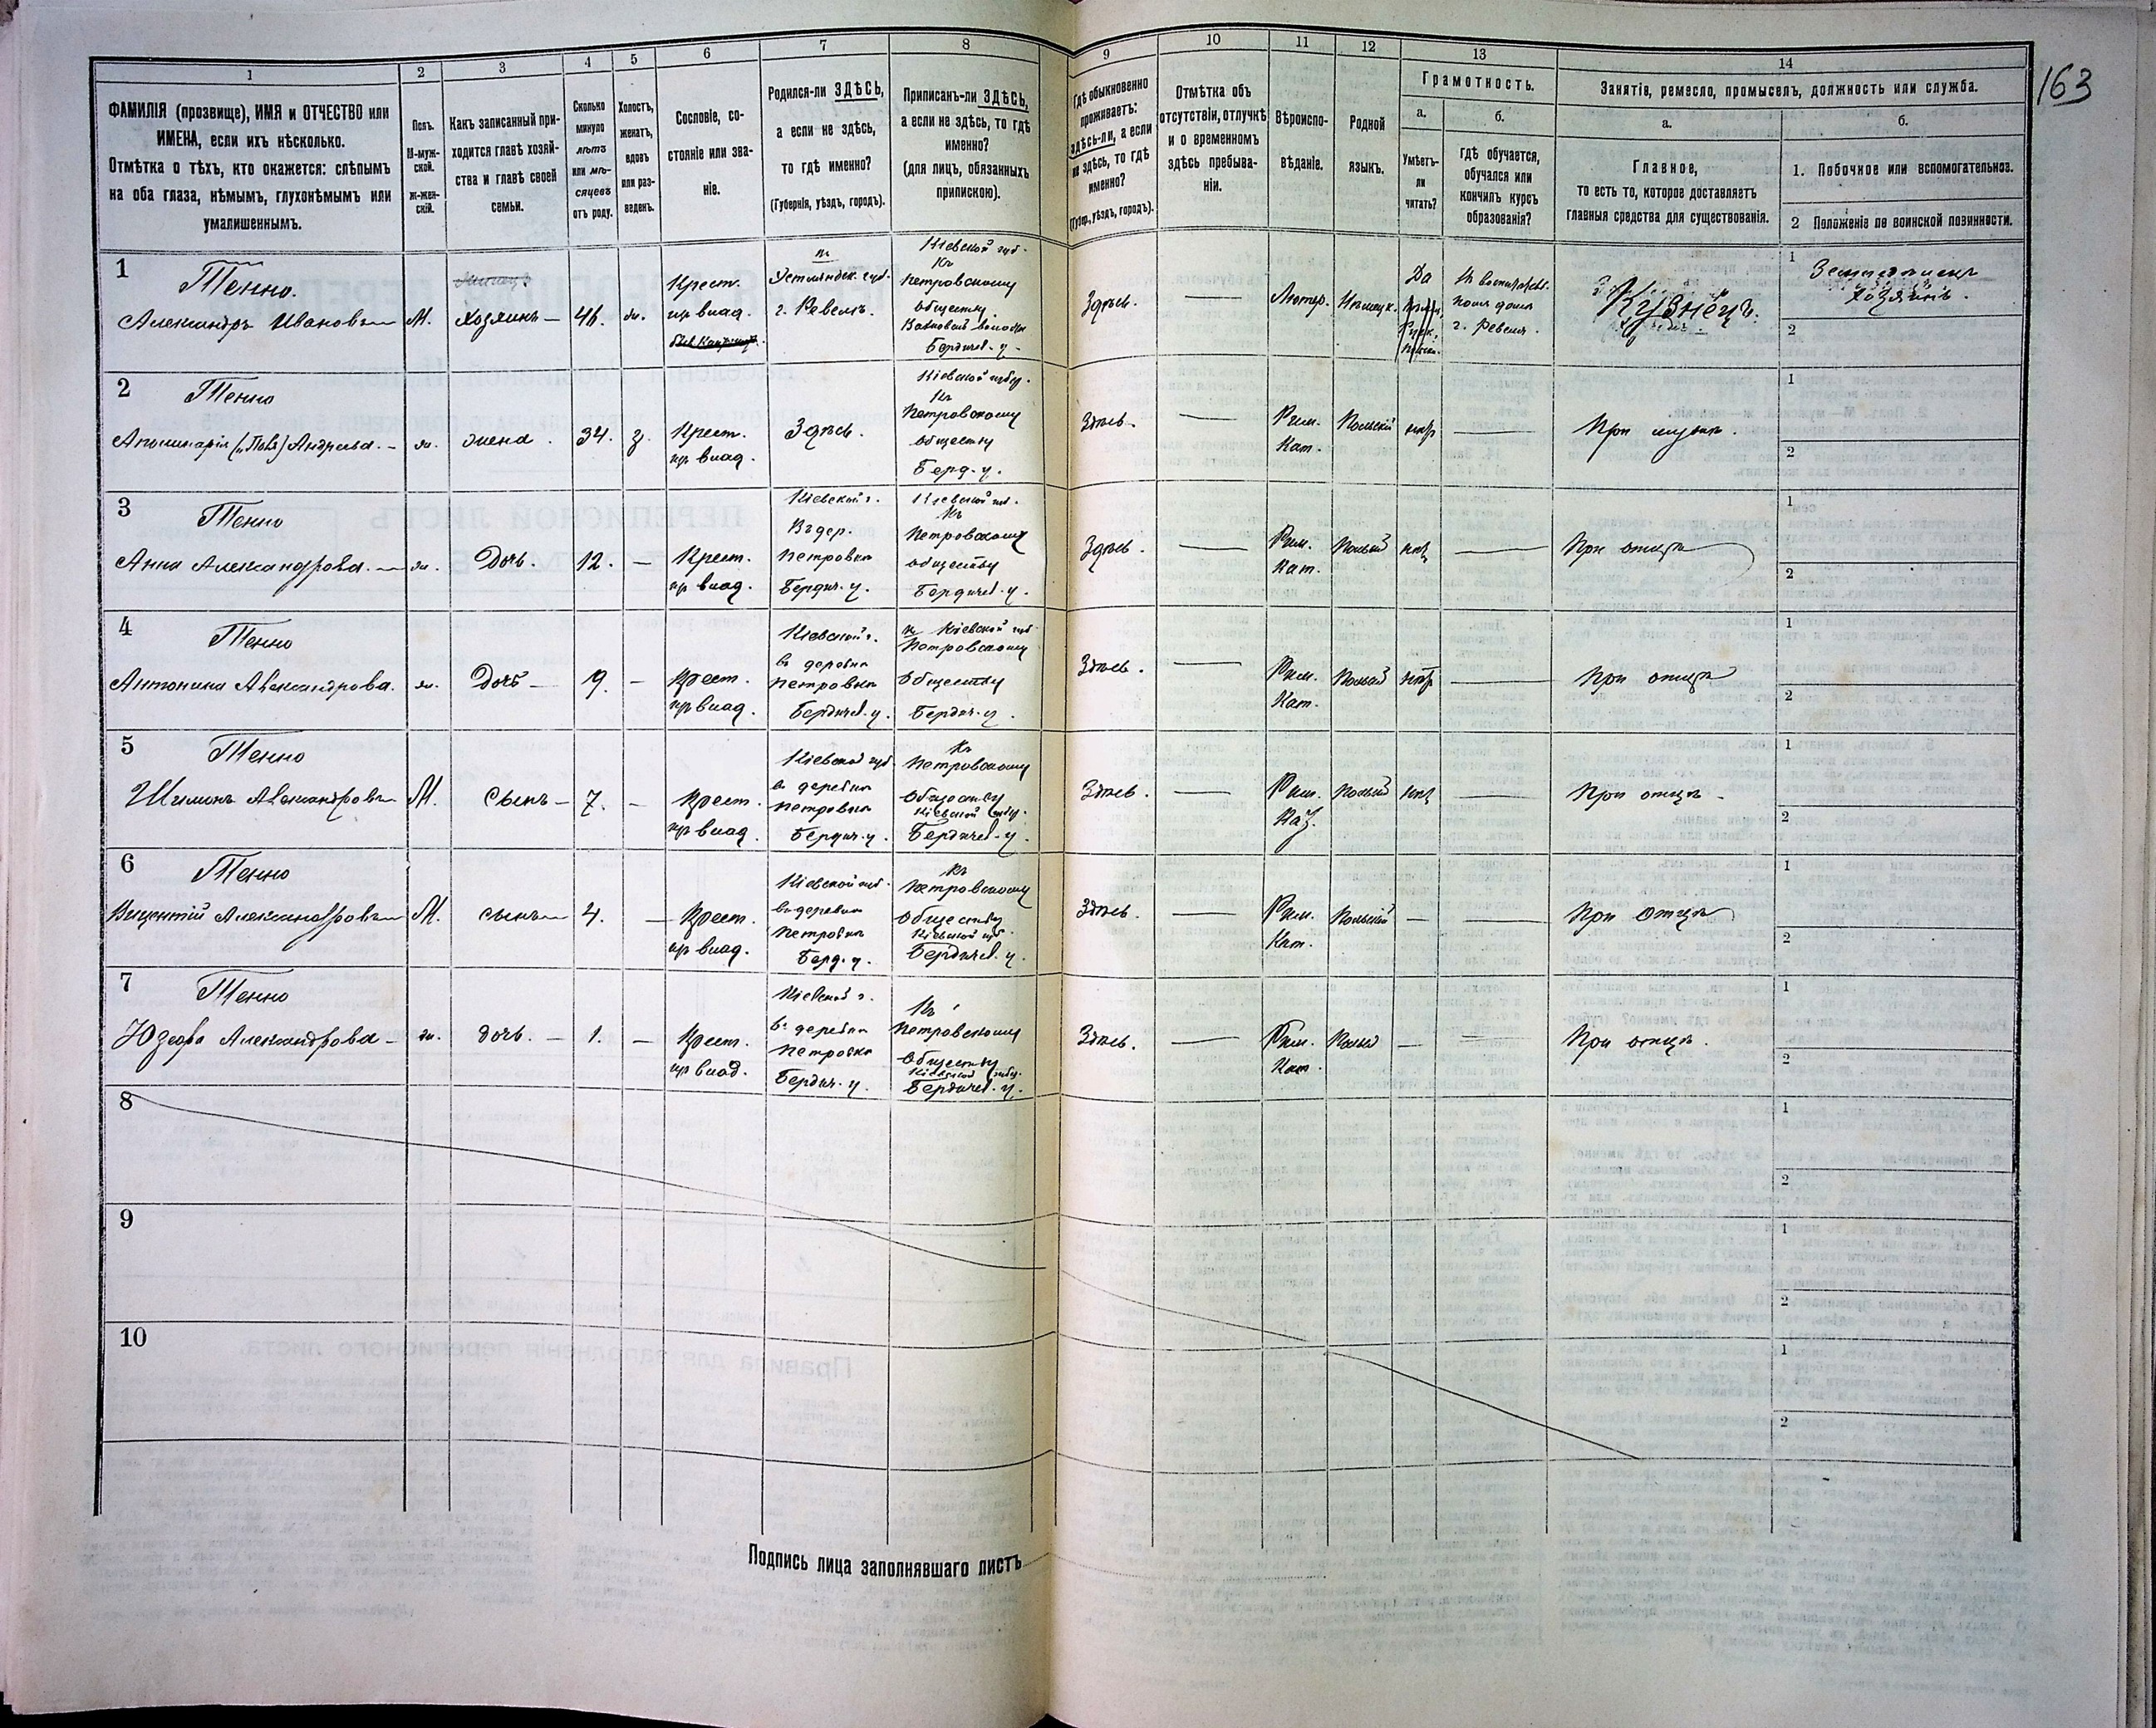 163
1 2 3 4 5 6 7 8 9 10 11 12 13 14
ФАМИЛІЯ (прозвище), ИМЯ и ОТЧЕСТВО или
ИМЕНА, если ихъ нѣсколько.
Отмѣтка о тѣхъ, кто окажется: слѣпымъ
на оба глаза, нѣмымъ, глухонѣмымъ или
умалишеннымъ.
Полъ.
М-муж-
ской.
Ж-жен-
скій.
Какъ записанный при-
ходится главѣ хозяй-
ства и главѣ своей
семьи.
Сколько
минуло
лѣтъ
или мѣ-
сяцевъ
отъ роду.
Холостъ,
женатъ,
вдовъ
или раз-
веденъ.
Сословіе, со-
стояніе или зва-
ніе.
Родился-ли ЗДѢСЬ,
а если не здѣсь,
то гдѣ именно?
(Губернія, уѣздъ, городъ).
Приписанъ-ли ЗДѢСЬ,
а если не здѣсь, то гдѣ
именно?
(для лицъ, обязанныхъ
припискою).
Гдѣ обыкновенно
проживаетъ:
здѣсь-ли, а если
не здѣсь, то гдѣ
именно?
(Губер., уѣздъ, городъ).
Отмѣтка объ
отсутствіи, отлучкѣ
и о временномъ
здѣсь пребыва-
ніи.
Вѣроиспо-
вѣданіе.
Родной
языкъ.
Грамотность.
а.
Умѣетъ-
ли
читать?
б.
гдѣ обучается,
обучался или
кончилъ курсъ
образованія?
Занятіе, ремесло, промыселъ, должность или служба.
а.
Главное,
то есть то, которое доставляетъ
главныя средства для существованія.
б.
1. Побочное или вспомогательное.
2 Положеніе по воинской повинности.
1
Тенно.
Александръ Ивановъ
М.
Хозяинъ
46.
ж.
Крест.
изъ влад.
г. Ревель.
Кіевской губ.
Къ
Петровскому
обществу
Бердичев. у.
Здѣсь.
Лютер.
Нѣмецк.
Да
г. Ревеля.
Кузнецъ.
1
хозяинъ.
2
2
Тенно
Андреева.
ж.
жена.
34.
з.
Крест.
изъ влад.
Здѣсь.
Кіевской губер.
Къ
Петровскому
обществу
Берд. у.
Здѣсь.
Рим.
Кат.
Польскій
нѣтъ
При мужѣ.
1
2
3
Тенно
Анна Александрова.
ж.
Дочь.
12.
Крест.
изъ влад.
Кіевской г.
Въ дер.
Петровка
Бердич. у.
Кіевской губ.
Къ
Петровскому
обществу
Бердичев. у.
Здѣсь.
Рим.
Кат.
Польскій
нѣтъ
При отцѣ
1
2
4
Тенно
Антонина Александрова.
ж.
Дочь
9.
Крест.
изъ влад.
Кіевской г.
въ деревна
Петровка
Бердичев. у.
къ Кіевской губ.
Петровскому
Обществу
Бердич. у.
Здѣсь.
Рим.
Кат.
Польскій
нѣтъ
При отцѣ
1
2
5
Тенно
Шимонъ Александровъ
М.
сынъ
7.
Крест.
изъ влад.
Кіевской губ.
въ деревна
Петровка
Бердич. у.
Къ
Петровскому
Обществу
Кіевской губер.
Бердичев. у.
Здѣсь.
Рим.
Кат.
Польскій
нѣтъ
При отцѣ
1
2
6
Тенно
Вицентій Александровъ
М.
сынъ
4.
Крест.
изъ влад.
Кіевской губ.
въ деревна
Петровка
Берд. у.
Къ
Петровскому
Обществу
Кіевской губ.
Бердичев. у.
Здѣсь.
Рим.
Кат.
Польскій
При Отцѣ
1
2
7
Тенно
Юзефа Александрова
ж.
дочь.
1.
Крест.
изъ влад.
Кіевской г.
въ деревна
Петровка
Бердич. у.
Къ
Петровскому
Обществу
Кіевской губер.
Бердичев. у.
Здѣсь.
Рим.
Кат.
Польскій
При отцѣ.
1
2
8
1
2
9
1
2
10
1
2
Подпись лица заполнявшаго листъ